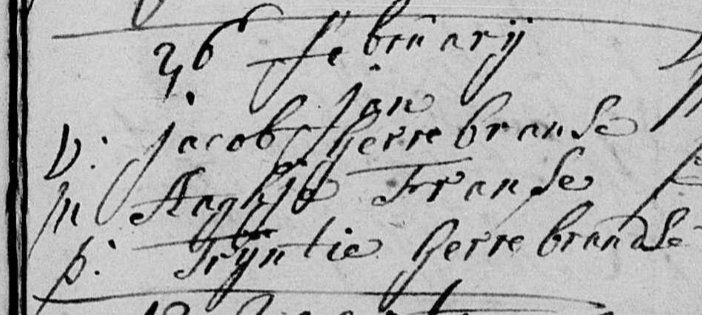 26 februarij
jan
V: jacob Gerrebranse
M Aaghje Franse
p: Trijntie Gerrebrandse